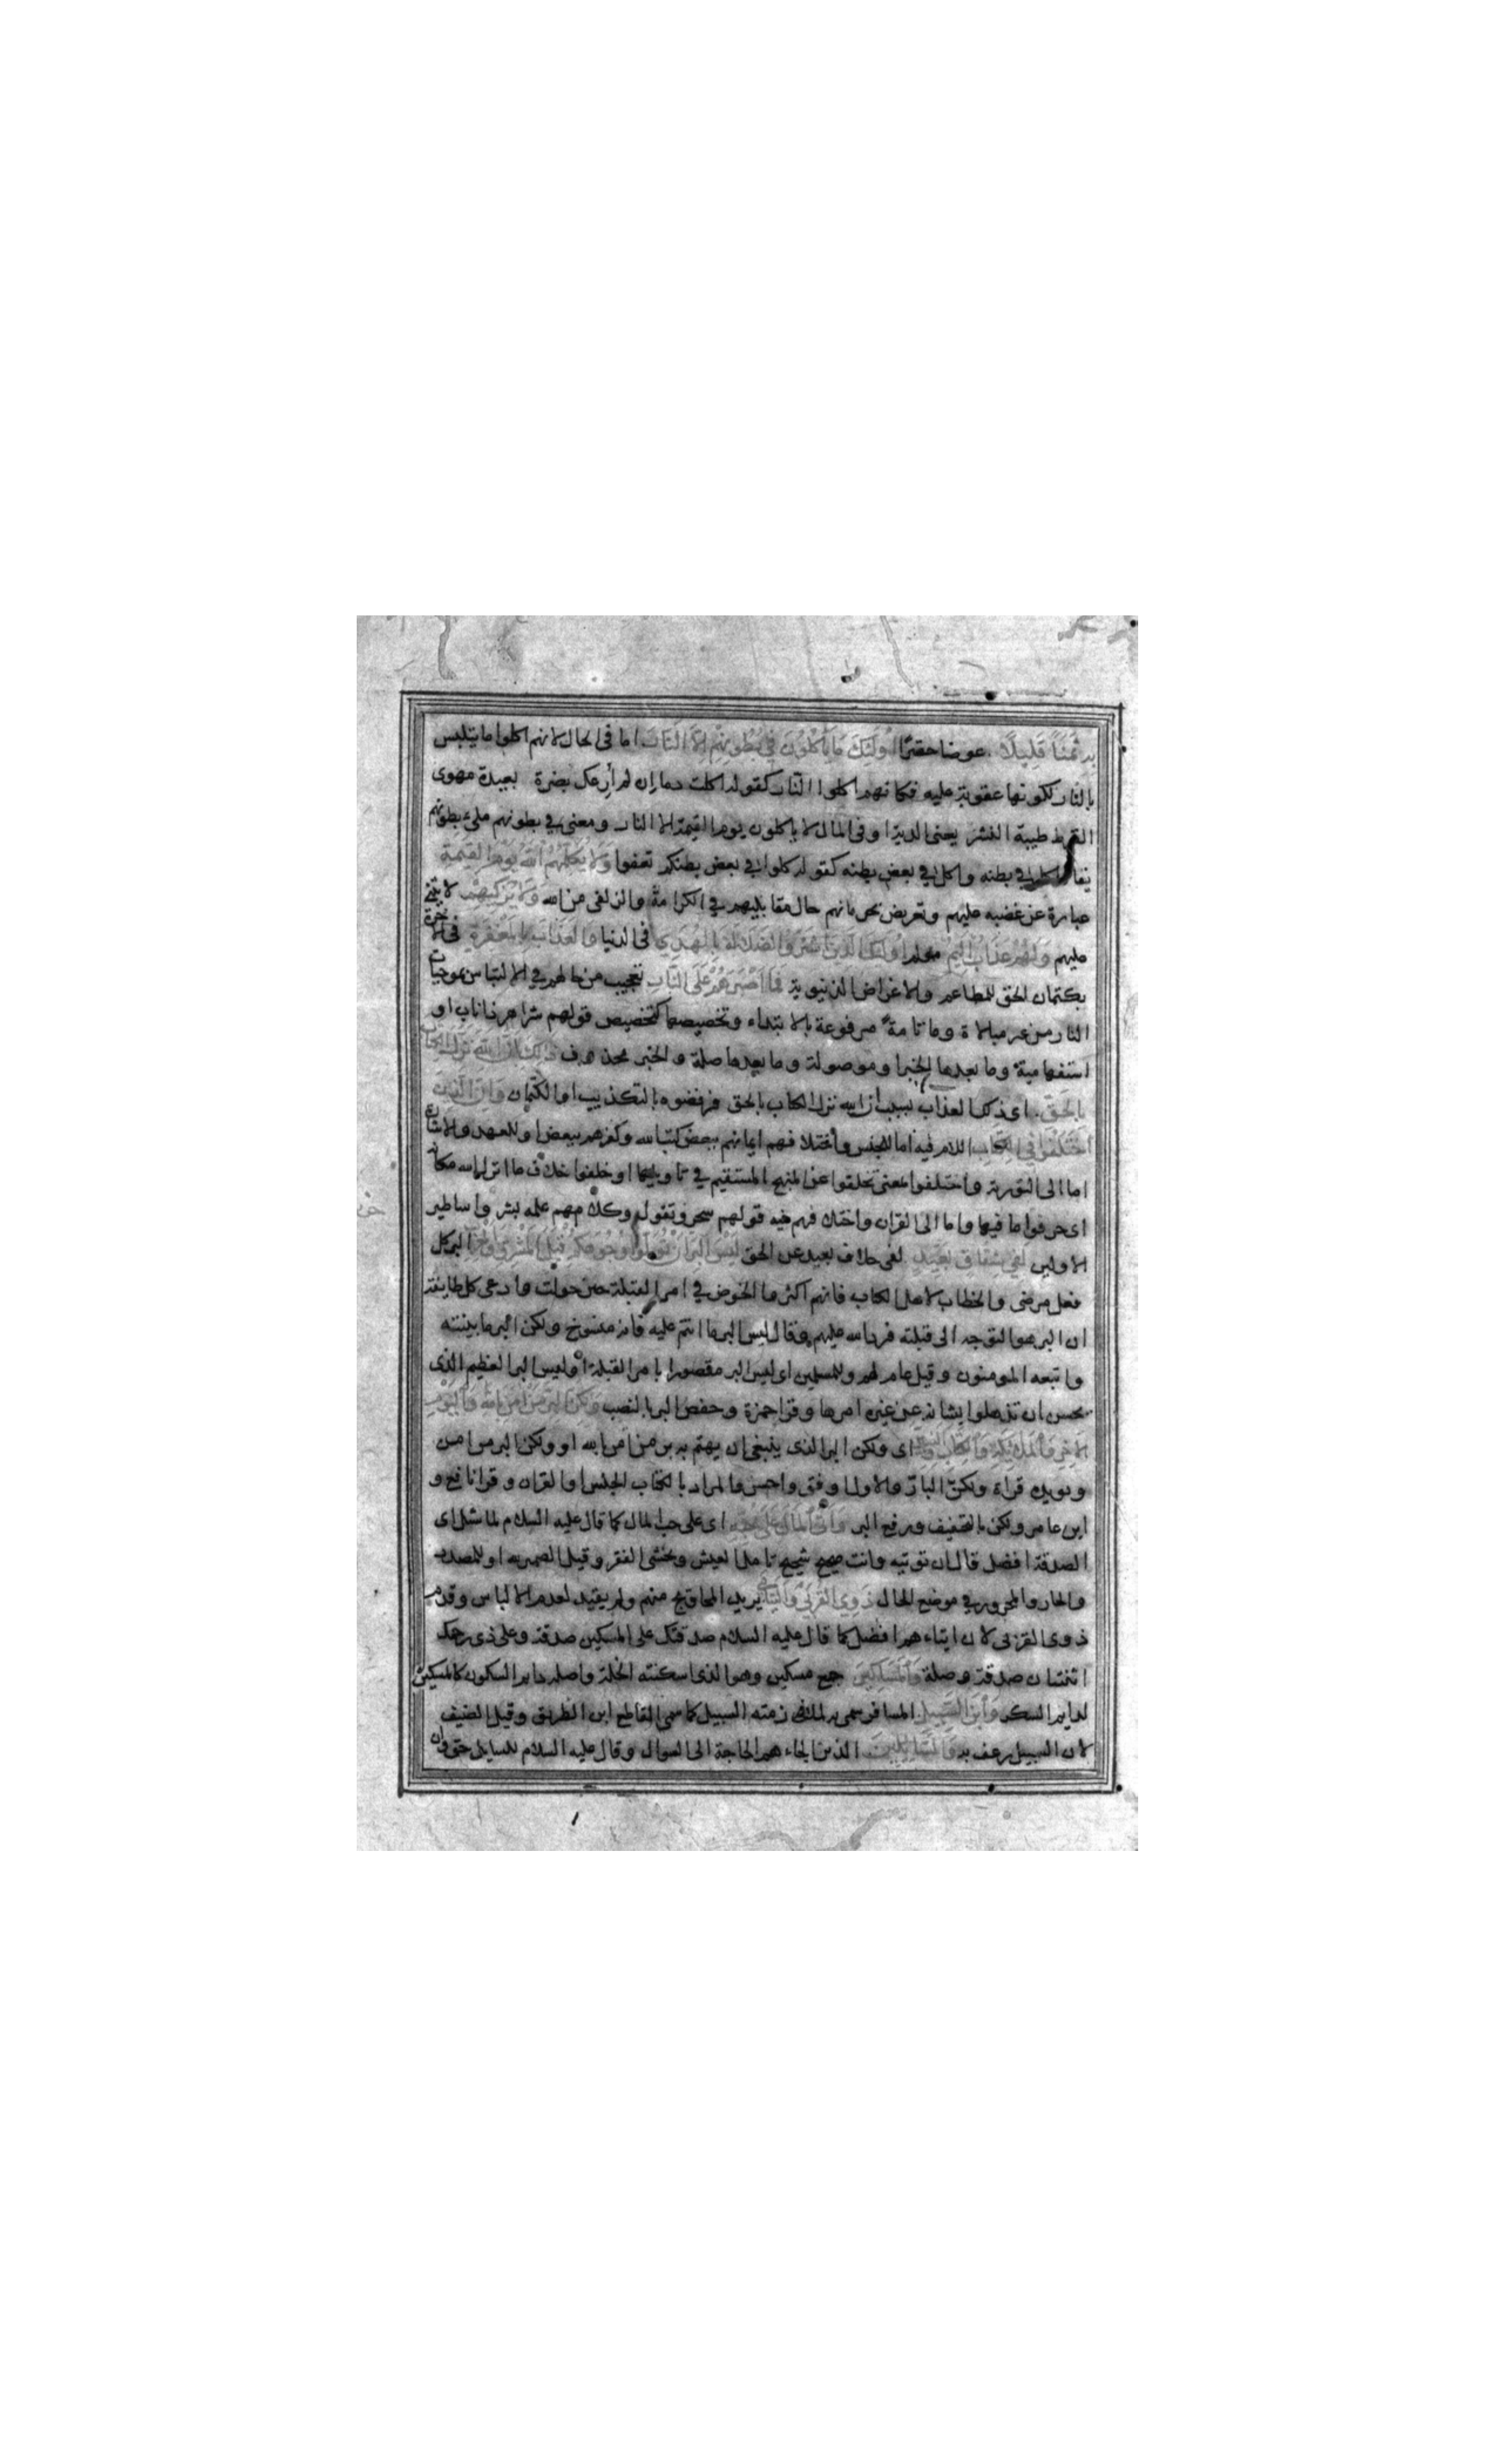 به ثَمَنًا قَلِيلًا عوضا حقيرًا أُولَئِكَ مَا يَأْكُلُونَ فِي بُطُونِهِمْ إِلَّا النَّارَ اما فى الحال لانهم اكلوا ما يتلبس
بالنار لكونها عقوبة عليه فكانهم اكلوا النار كقوله اكلت دما إن لم أرعك بضرة بعيدة مهوى
القرط طيبة النشر يعنى الدية او فى المال لا ياكلون يوم القيمة الا النار ومعنى في بطونهم ملىء بطونهم
يقال اكل في بطنه واكل في بعض بطنه كقوله كلوا في بعض بطنكم تعفوا وَلَا يُكَلِّمُهُمُ اللَّهُ يَوْمَ الْقِيمَةِ
عبارة عن غضبه عليهم وتعريض بحرمانهم حال مقابليهم في الكرامة والزلفى من الله وَلَا يُزَكِّيهِمْ لا يثنى
عليهم وَلَهُمْ عَذَابٌ أَلِيمٌ مولم أُولَئِكَ الَّذِينَ اشْتَرَوُا الضَّلَالَةَ بِالْهُدَى فى الدنيا وَالْعَذَابَ بِالْمَغْفِرَةِ فى الاخرة
بكتمان الحق للمطاعم والاغراض الدنيوية فَمَا أَصْبَرَهُمْ عَلَى النَّارِ تعجيب من حالهم في الالتباس بموجبات
النار من غير مبالاة وما تامة مرفوعة بالابتداء وتخصيصها كتخصيص قولهم شر اهر ذا ناب او
استفهامية وما بعدها الخبر او موصولة وما بعدها صلة والخبر محذوف ذَلِكَ بِأَنَّ اللَّهَ نَزَّلَ الْكِتَابَ
بِالْحَقِّ اى ذلك العذاب بسبب ان الله نزل الكتاب بالحق فرفضوه بالتكذيب او الكتمان وَإِنَّ الَّذِينَ
اخْتَلَفُوا فِي الْكِتَابِ اللام فيه اما للجنس واختلافهم ايمانهم ببعض كتب الله وكفرهم ببعض او للعهد والاشارة
اما الى التورية واختلفوا بمعنى تخلفوا عن المنهج المستقيم في تاويلها او خلفوا خلاف ما انزل الله مكانه
اى حرفوا ما فيها واما الى القران واختلافهم فيه قولهم سحر وتقول وكلام علمه بشر واساطير
الاولين لَفِي شِقَاقٍ بَعِيدٍ لفى خلاف بعيد عن الحق لَيْسَ الْبِرَّ أَنْ تُوَلُّوا وُجُوهَكُمْ قِبَلَ الْمَشْرِقِ وَالْمَغْرِبِ البر كل
فعل مرضى والخطاب لاهل الكتاب فانهم اكثروا الخوض في امر القبلة حين حولت وادعى كل طايفة
ان البر هو التوجه الى قبلته فرد الله عليهم وقال ليس البر ما انتم عليه فانه منسوخ ولكن البر ما بينته
واتبعه المومنون وقيل عام لهم وللمسلمين اى ليس البر مقصورا بامر القبلة او ليس البر العظيم الذى
يحسن ان تذهلوا بشانه عن غيره امرها وقرا حمزة وحفص البر بالنصب وَلَكِنَّ الْبِرَّ مَنْ آمَنَ بِاللَّهِ وَالْيَوْمِ
الْآخِرِ وَالْمَلَائِكَةِ وَالْكِتَابِ وَالنَّبِيِّينَ اى ولكن البر الذى ينبغى ان يهتم به بر من امن بالله او ولكن البر من امن
ويويده قراءة ولكن البار والاول اوفق واحسن والمراد بالكتاب الجنس او القران وقرا نافع و
ابن عامر ولكن بالتخفيف ورفع البر وَآتَى الْمَالَ عَلَى حُبِّهِ اى على حب المال كما قال عليه السلام لما سئل اى
الصدقة افضل قال ان توتيه وانت صحيح شحيح تامل العيش وتخشى الفقر وقيل الضمير لله او للمصدر
والجار والمجرور في موضع الحال ذَوِي الْقُرْبَى وَالْيَتَامَى يريد المحاويج منهم ولم يقيد لعدم الالباس وقدم
ذوى القربى لان ايتاءهم افضل كما قال عليه السلام صدقتك على المسكين صدقة وعلى ذى رحمك
اثنتان صدقة وصلة وَالْمَسَاكِينَ جمع مسكين وهو الذى اسكنته الخلة واصله دايم السكون كالمسكير
لدايم السكر وَابْنَ السَّبِيلِ المسافر سمى به لملازمته السبيل كما سمى القاطع ابن الطريق وقيل الضيف
لان السبيل يرعف به وَالسَّائِلِينَ الذين الجاءهم الحاجة الى السوال وقال عليه السلام للسايل حق وان